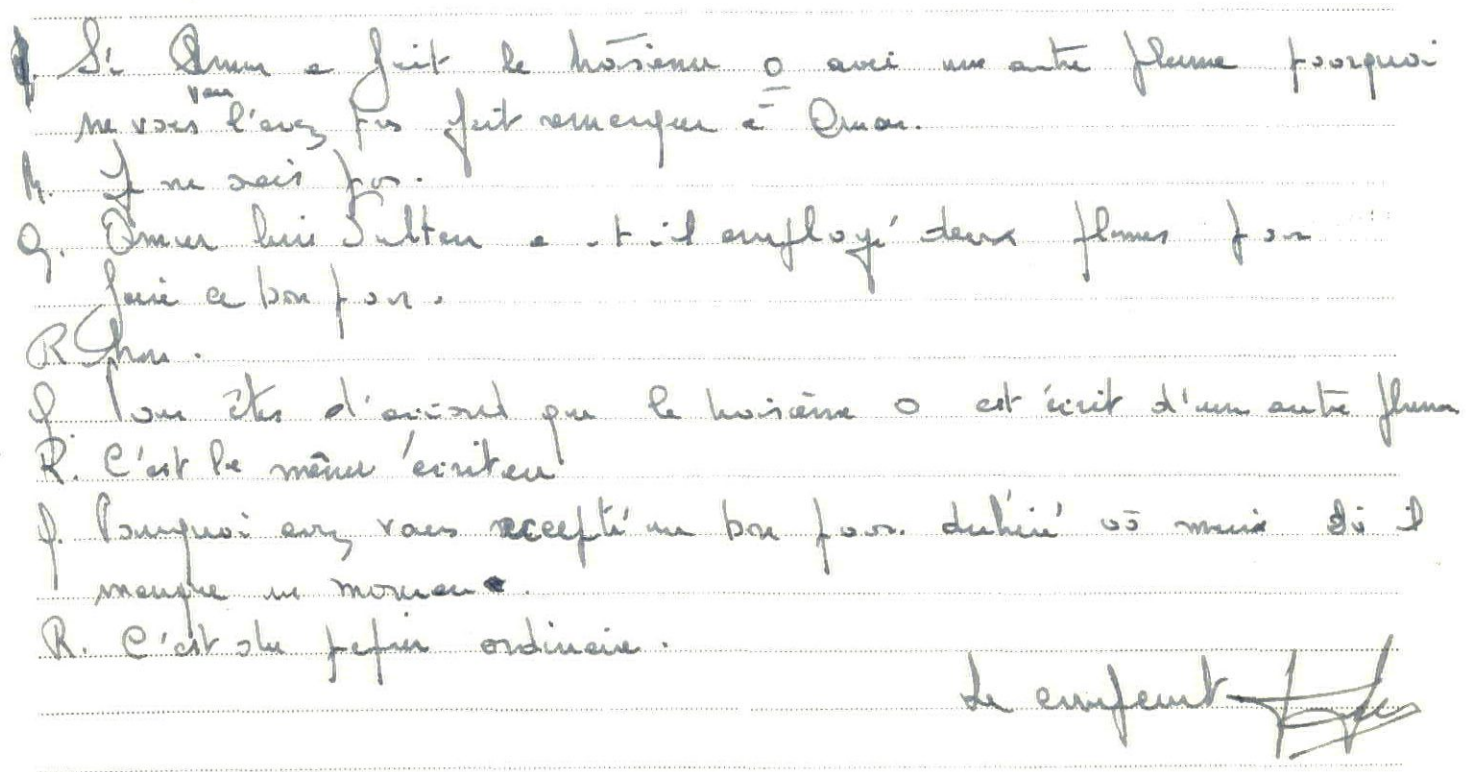 Q. Si Omar a fait le troisième 0 avec une autre plume pourquoi
ne vous vous l'avez pas fait remarquer à Omar.
R. Je ne sais pas.
Q. Omar a-t-il employé deux plumes pour
faire ce bon pour.
R Non.
Q Vous êtes d'accord que le troisième 0 est écrit d'une autre plume
R. C'est le même écriteur
Q. Pourquoi avez vous accepté un bon pour déchiré où il
manque un morceau.
R. C'est du papier ordinaire.
Le